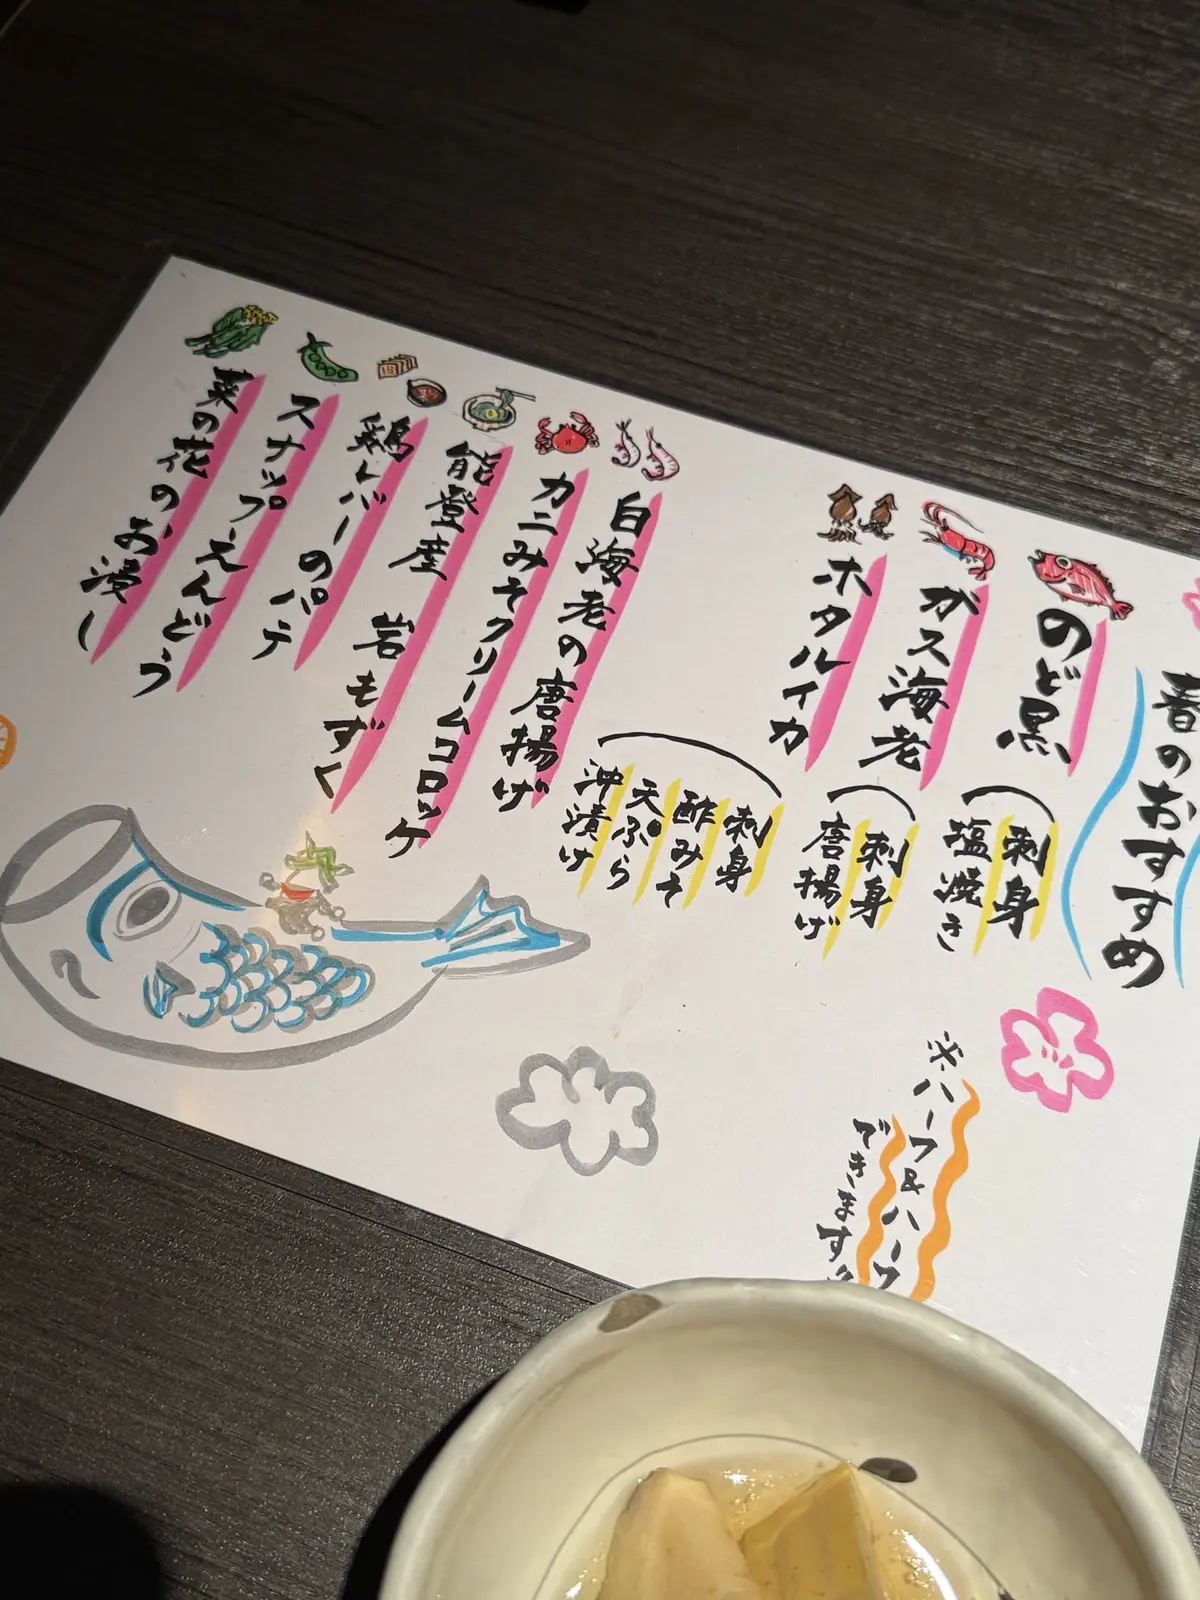 春のおすすめ
のど黒
刺身
塩焼き
ガス海老
刺身
唐揚げ
ホタルイカ
刺身
酢みそ
天ぷら
沖漬け
白海老の唐揚げ
カニみそクリームコロッケ
能登産 岩もずく
鶏レバーのパテ
スナップえんどう
菜の花のお浸し
※ハーフ&ハーフ
できます